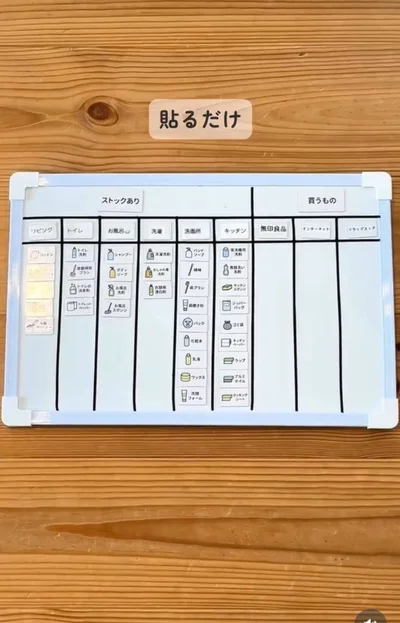 貼るだけ
ストックあり
買うもの
リビング
トイレ
お風呂
洗濯
洗面所
キッチン
無印良品
インターネット
ドラッグストア
トイレ
洗剤
トイレ
ペーパー
シャンプー
ボディ
ソープ
お風呂
洗剤
お風呂
スポンジ
洗濯洗剤
おしゃれ着
洗剤
ハンド
ソープ
歯ブラシ
歯磨き粉
パック
化粧水
乳液
ワックス
洗顔
フォーム
キッチン
スポンジ
ジッパー
バッグ
ゴミ袋
キッチン
ペーパー
ラップ
アルミ
ホイル
クッキング
シート